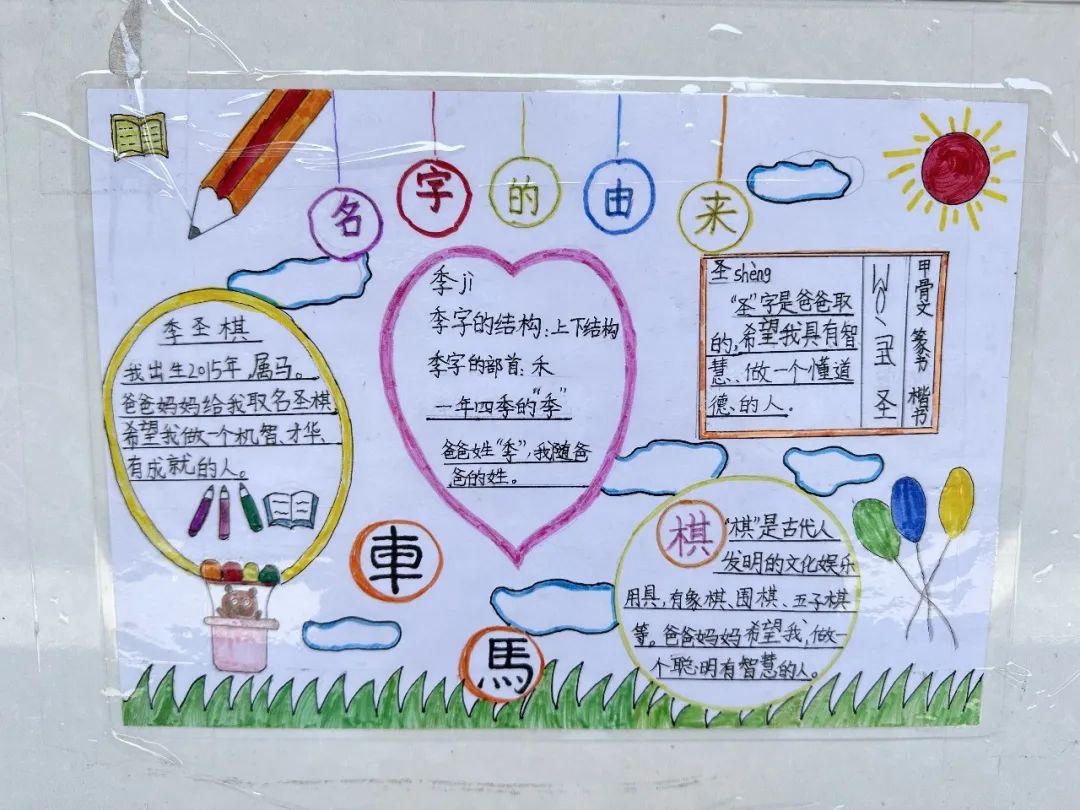 名字的由来
季圣棋
我出生2015年,属马。
爸爸妈妈给我取名圣棋,
希望我做一个机智、才华、
有成就的人。
季jì
季字的结构:上下结构
季字的部首:禾
一年四季的“季”
爸爸姓“季”,我随爸
爸的姓。
圣shèng
“圣”字是爸爸取
的,希望我具有智
慧、做一个懂道
德、的人。
圣
甲骨文 篆书 楷书
車
馬
棋
“棋”是古代人
发明的文化娱乐
用具,有象棋、围棋、五子棋
等。爸爸妈妈希望我,做一
个聪明有智慧的人。